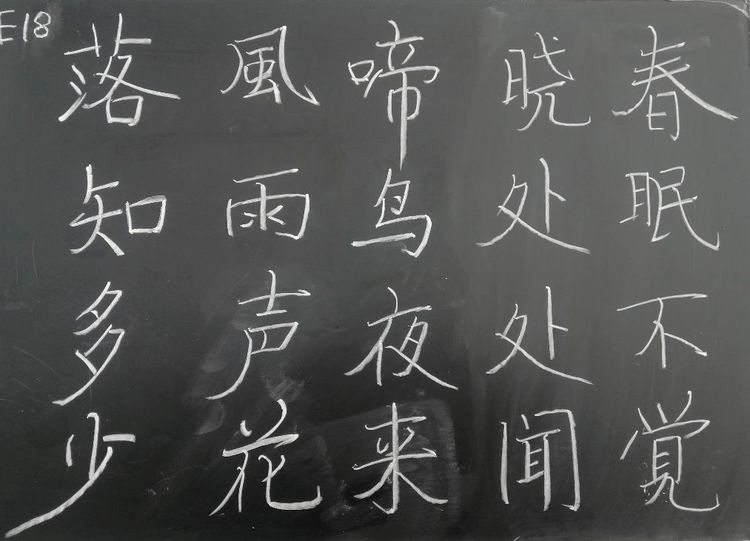 E18
春眠不覚
晓处处闻
啼鸟夜来
風雨声花
落知多少